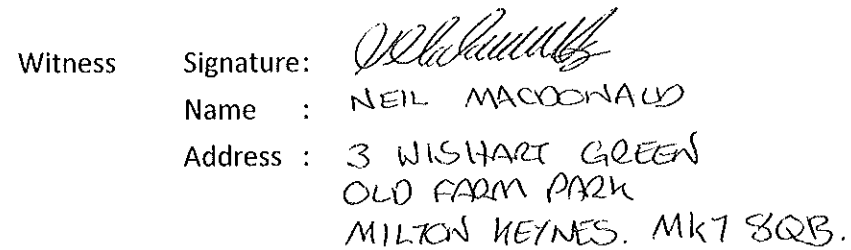 Witness Signature:
Name : NEIL MACDONALD
Address : 3 WISHART GREEN
OLD FARM PARK
MILTON KEYNES. MK7 8QB.